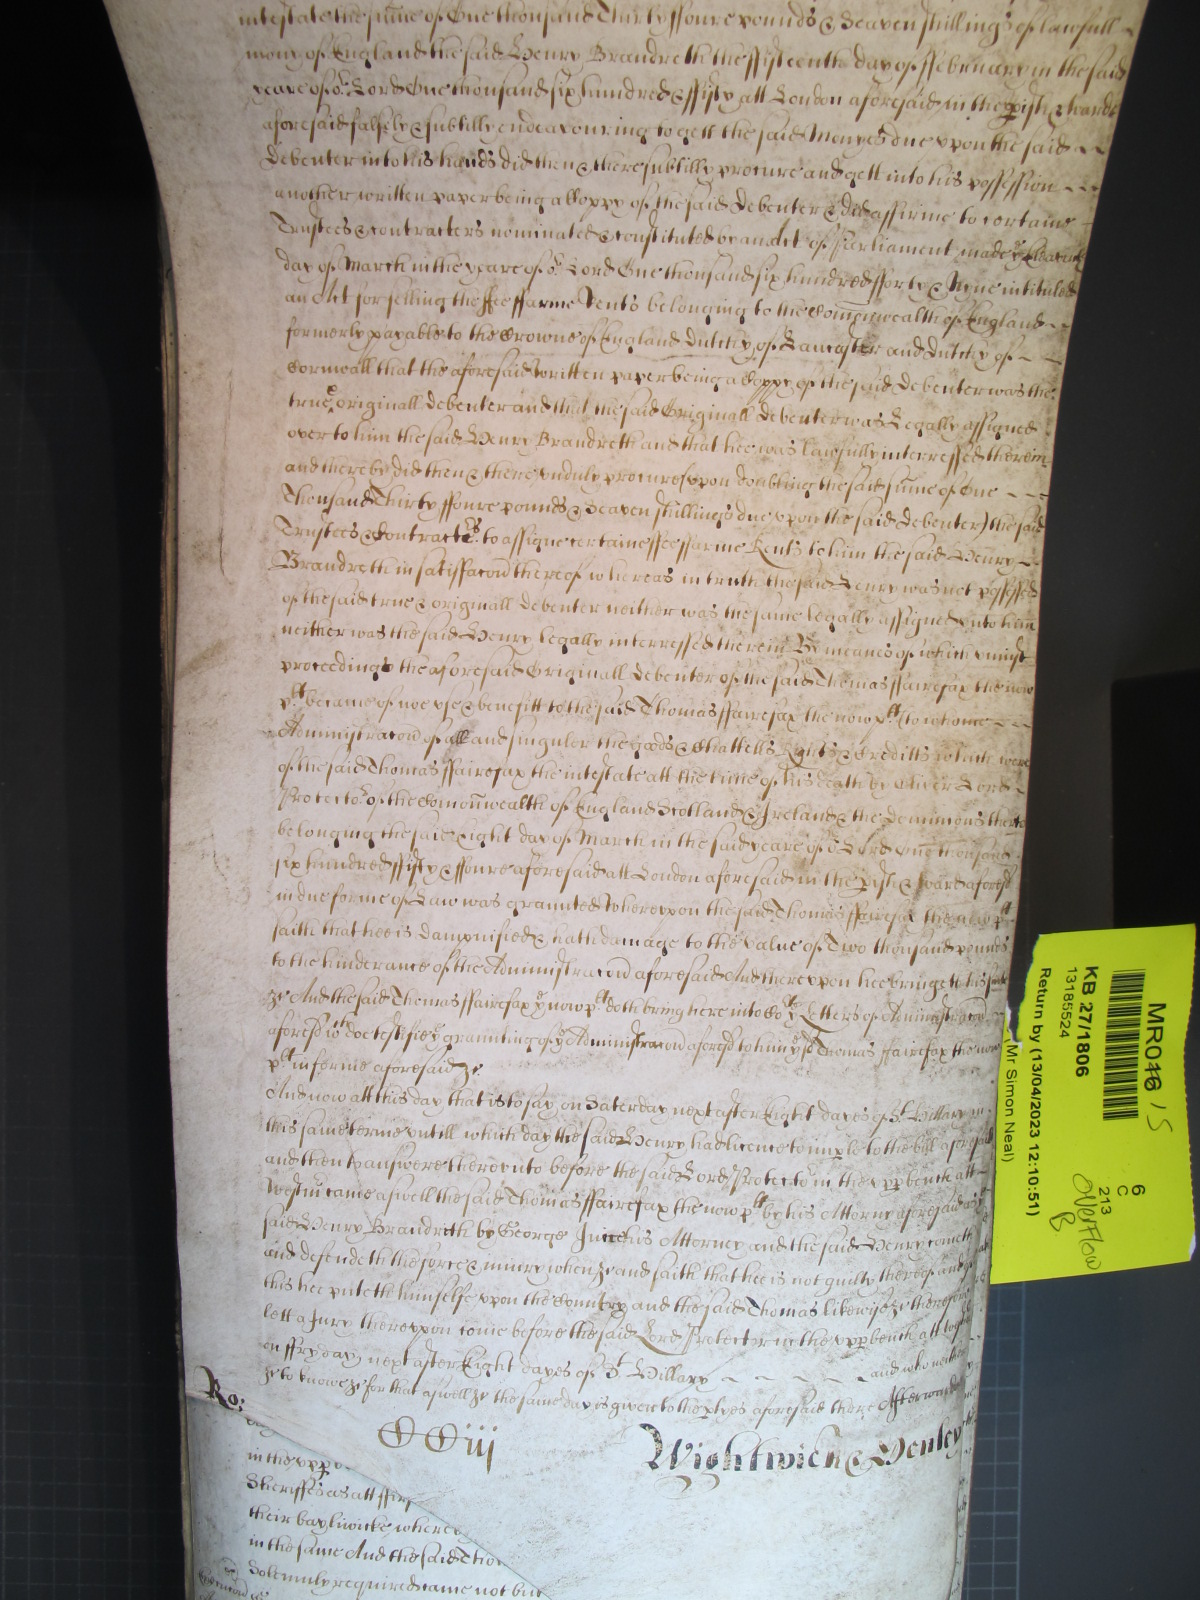 intestate the sume of One thousand Thirty ffoure pounds & Seaven shillings of lawfull
mony of England the said Henry Brandreth the ffifteenth day of ffebruary in the said
yeare of or Lord One thousand six hundred & ffifty att London aforesaid in the pish & warde
aforesaid falsely & subtilly endeavouring to gett the said Monyes due upon the said
Debenter into his hands did then & there subtilly procure and gett into his possession
another written paper being a Coppy of the said Debenter & did affirme to certaine
Trustees & contracters nominated & constituted by an Act of Parliament made ye Eleaventh
day of March in the yeare of or Lord One thousand six hundred fforty & Nyne intituled
an Act for selling the ffee ffarme Rents belonging to the Comonwealth of England
formerly payable to the Crowne of England Dutchy of Lancaster and Dutchy of
Cornwall that the aforesaid written paper being a Coppy of the said Debenter was the
true originall Debenter and that the said Originall Debenter was Legally assigned
over to him the said Henry Brandreth and that hee was lawfully interressed therein
and thereby did then & there unduly procure (upon doubling the said sume of One
Thousand Thirty ffoure pounds & Seaven shillings due upon the said Debenter) the said
Trustees & Contractrs to assigne certaine ffee ffarme Rents to him the said Henry
Brandreth in satisfaccon thereof whereas in truth the said Henry was not possessed
of the said true & originall Debenter neither was the same legally assigned unto him
neither was the said Henry legally interressed therein By meanes of which unjust
proceedings the aforesaid Originall Debenter of the said Thomas ffairefax the now
plt became of noe use & benefitt to the said Thomas ffairefax the now plt (to whome
Administracon of all and singuler the goods & Chattells Rights & Creditts which were
of the said Thomas ffairefax the intestate att the time of his death by Oliver Lord
Protector of the Comonwealth of England Scotland & Ireland & the Dominions thereto
belonging the said Eight day of March in the said yeare of or Lord One thousand
six hundred ffifty & ffoure aforesaid att London aforesaid in the pish & warde aforesd
in due forme of Law was graunted Whereupon the said Thomas ffairefax the now plt
saith that hee is dampnified & hath damage to the value of Two thousand pounds
to the hinderance of the Administracon aforesaid And thereupon hee bringeth his suite
&c And the said Thomas ffairefax ye now plt doth bring here into Cort ye Letters of Administracon
aforesd wch doe testifie ye graunting of ye Administracon aforesd to him ye sd Thomas ffairefax the now
plt in forme aforesaid &c
And now att this day that is to say on Saterday next after Eight dayes of St Hillary in
this same terme untill which day the said Henry had licence to imple to the bill aforesaid
and then to answere thereunto before the said Lord Protector in the upp bench att
Westmr came aswell the said Thomas ffairefax the now plt by his Attorny aforesaid as
said Henry Brandreth by George his Attorney and the said Henry cometh
and defendeth the force & injury when &c and saith that hee is not guilty thereof and
this hee putteth himselfe upon the Country and the said Thomas likewise &c Therefore
lett a Jury thereupon come before the said Lord Protector in the upp bench att
on ffryday next after Eight dayes of St Hillary and who neither
&c to knowe &c for that aswell &c the same day is given to the ptyes aforesaid there Afterwards
Ro:
CCiij
Wightwick & Henley
in the upp
Sheriffes as att ffirst
their bayliwicke where
in the same And the said Tho
Solemnly required came not but
MR046 15
KB 27/1806
13185524
Return by (13/04/2023 12:10:51)
(Mr Simon Neal)
6
C
213
Overflow
B